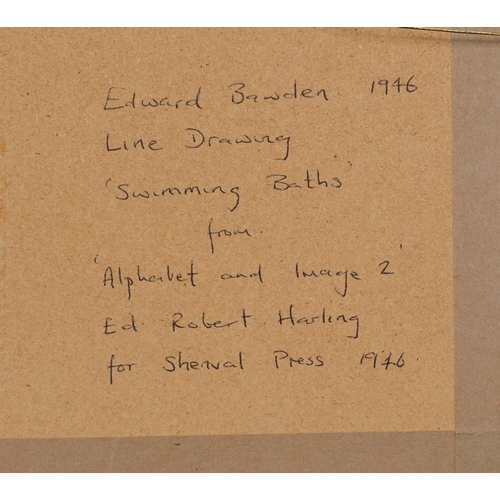 Edward Bawden 1946
Line Drawing
'Swimming Baths'
from.
'Alphabet and Image 2'
Ed Robert Harling
for Shenval Press 1946